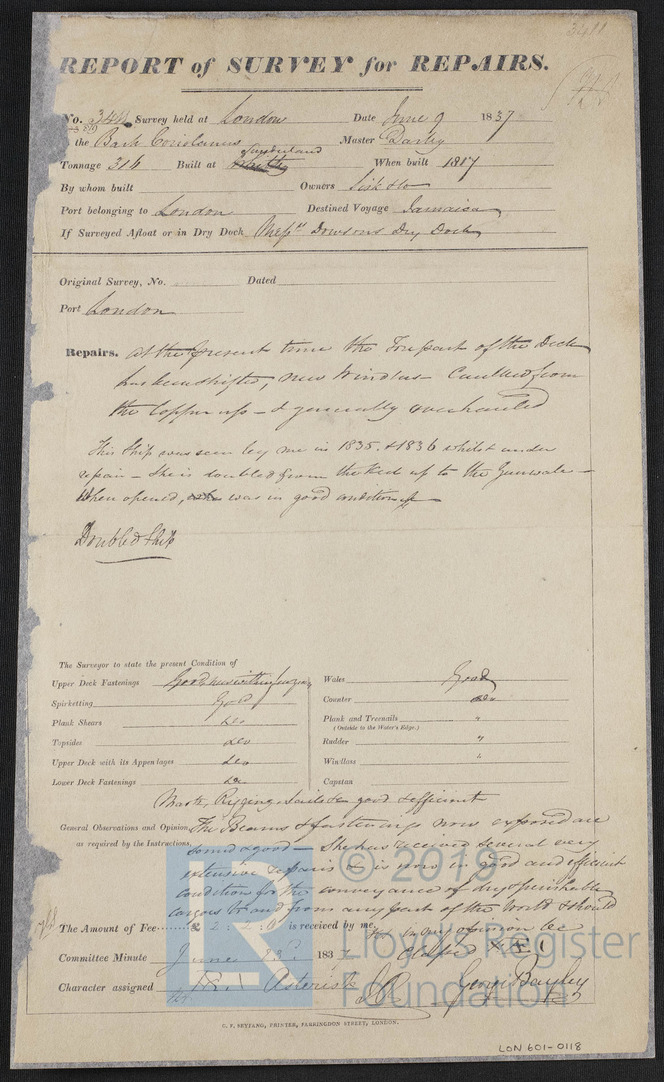 3411
REPORT of SURVEY for REPAIRS.
No. 3411 Survey held at London Date June 9 1837
the Bark Coriolanus Master Darby
Sunderland
Tonnage 316 Built at When built 1817
By whom built Owners Sisk & Co
Port belonging to London Destined Voyage Jamaica
If Surveyed Afloat or in Dry Dock Messrs Dowsons Dry Dock
Original Survey, No. Dated
Port London
Repairs. At the present time the Forepart of the Deck
has been shifted, new Windlass - Caulked from
the Copper up - & generally overhauled
This Ship was seen by me in 1835 & 1836 whilst under
repair - She is doubled from the Keel up to the Gunwale -
When opened, was in good condition
Doubled Ship
The Surveyor to state the present Condition of
Upper Deck Fastenings Good
Spirketting Good
Plank Shears do
Topsides do
Upper Deck with its Appendages do
Lower Deck Fastenings do
Wales Good
Counter do
Plank and Treenails "
(Outside to the Water's Edge.)
Rudder "
Windlass "
Capstan
Masts, Rigging, Sails &c good & efficient
General Observations and Opinion, The Beams & fastenings now exposed are
as required by the Instructions, sound & good - She has received several very
extensive repairs & is now in good and efficient
condition for the conveyance of dry & perishable
cargoes to and from any part of the World & should
The Amount of Fee £ 2 : 2 : 0 is received by me, in my opinion be
Committee Minute June 183 Classed Æ 1
Character assigned Æ 1 Asterisk George Bayley
© 2019
Lloyd's Register
Foundation
LR
C. F. SEYFANG, PRINTER, FARRINGDON STREET, LONDON.
LON 601-0118